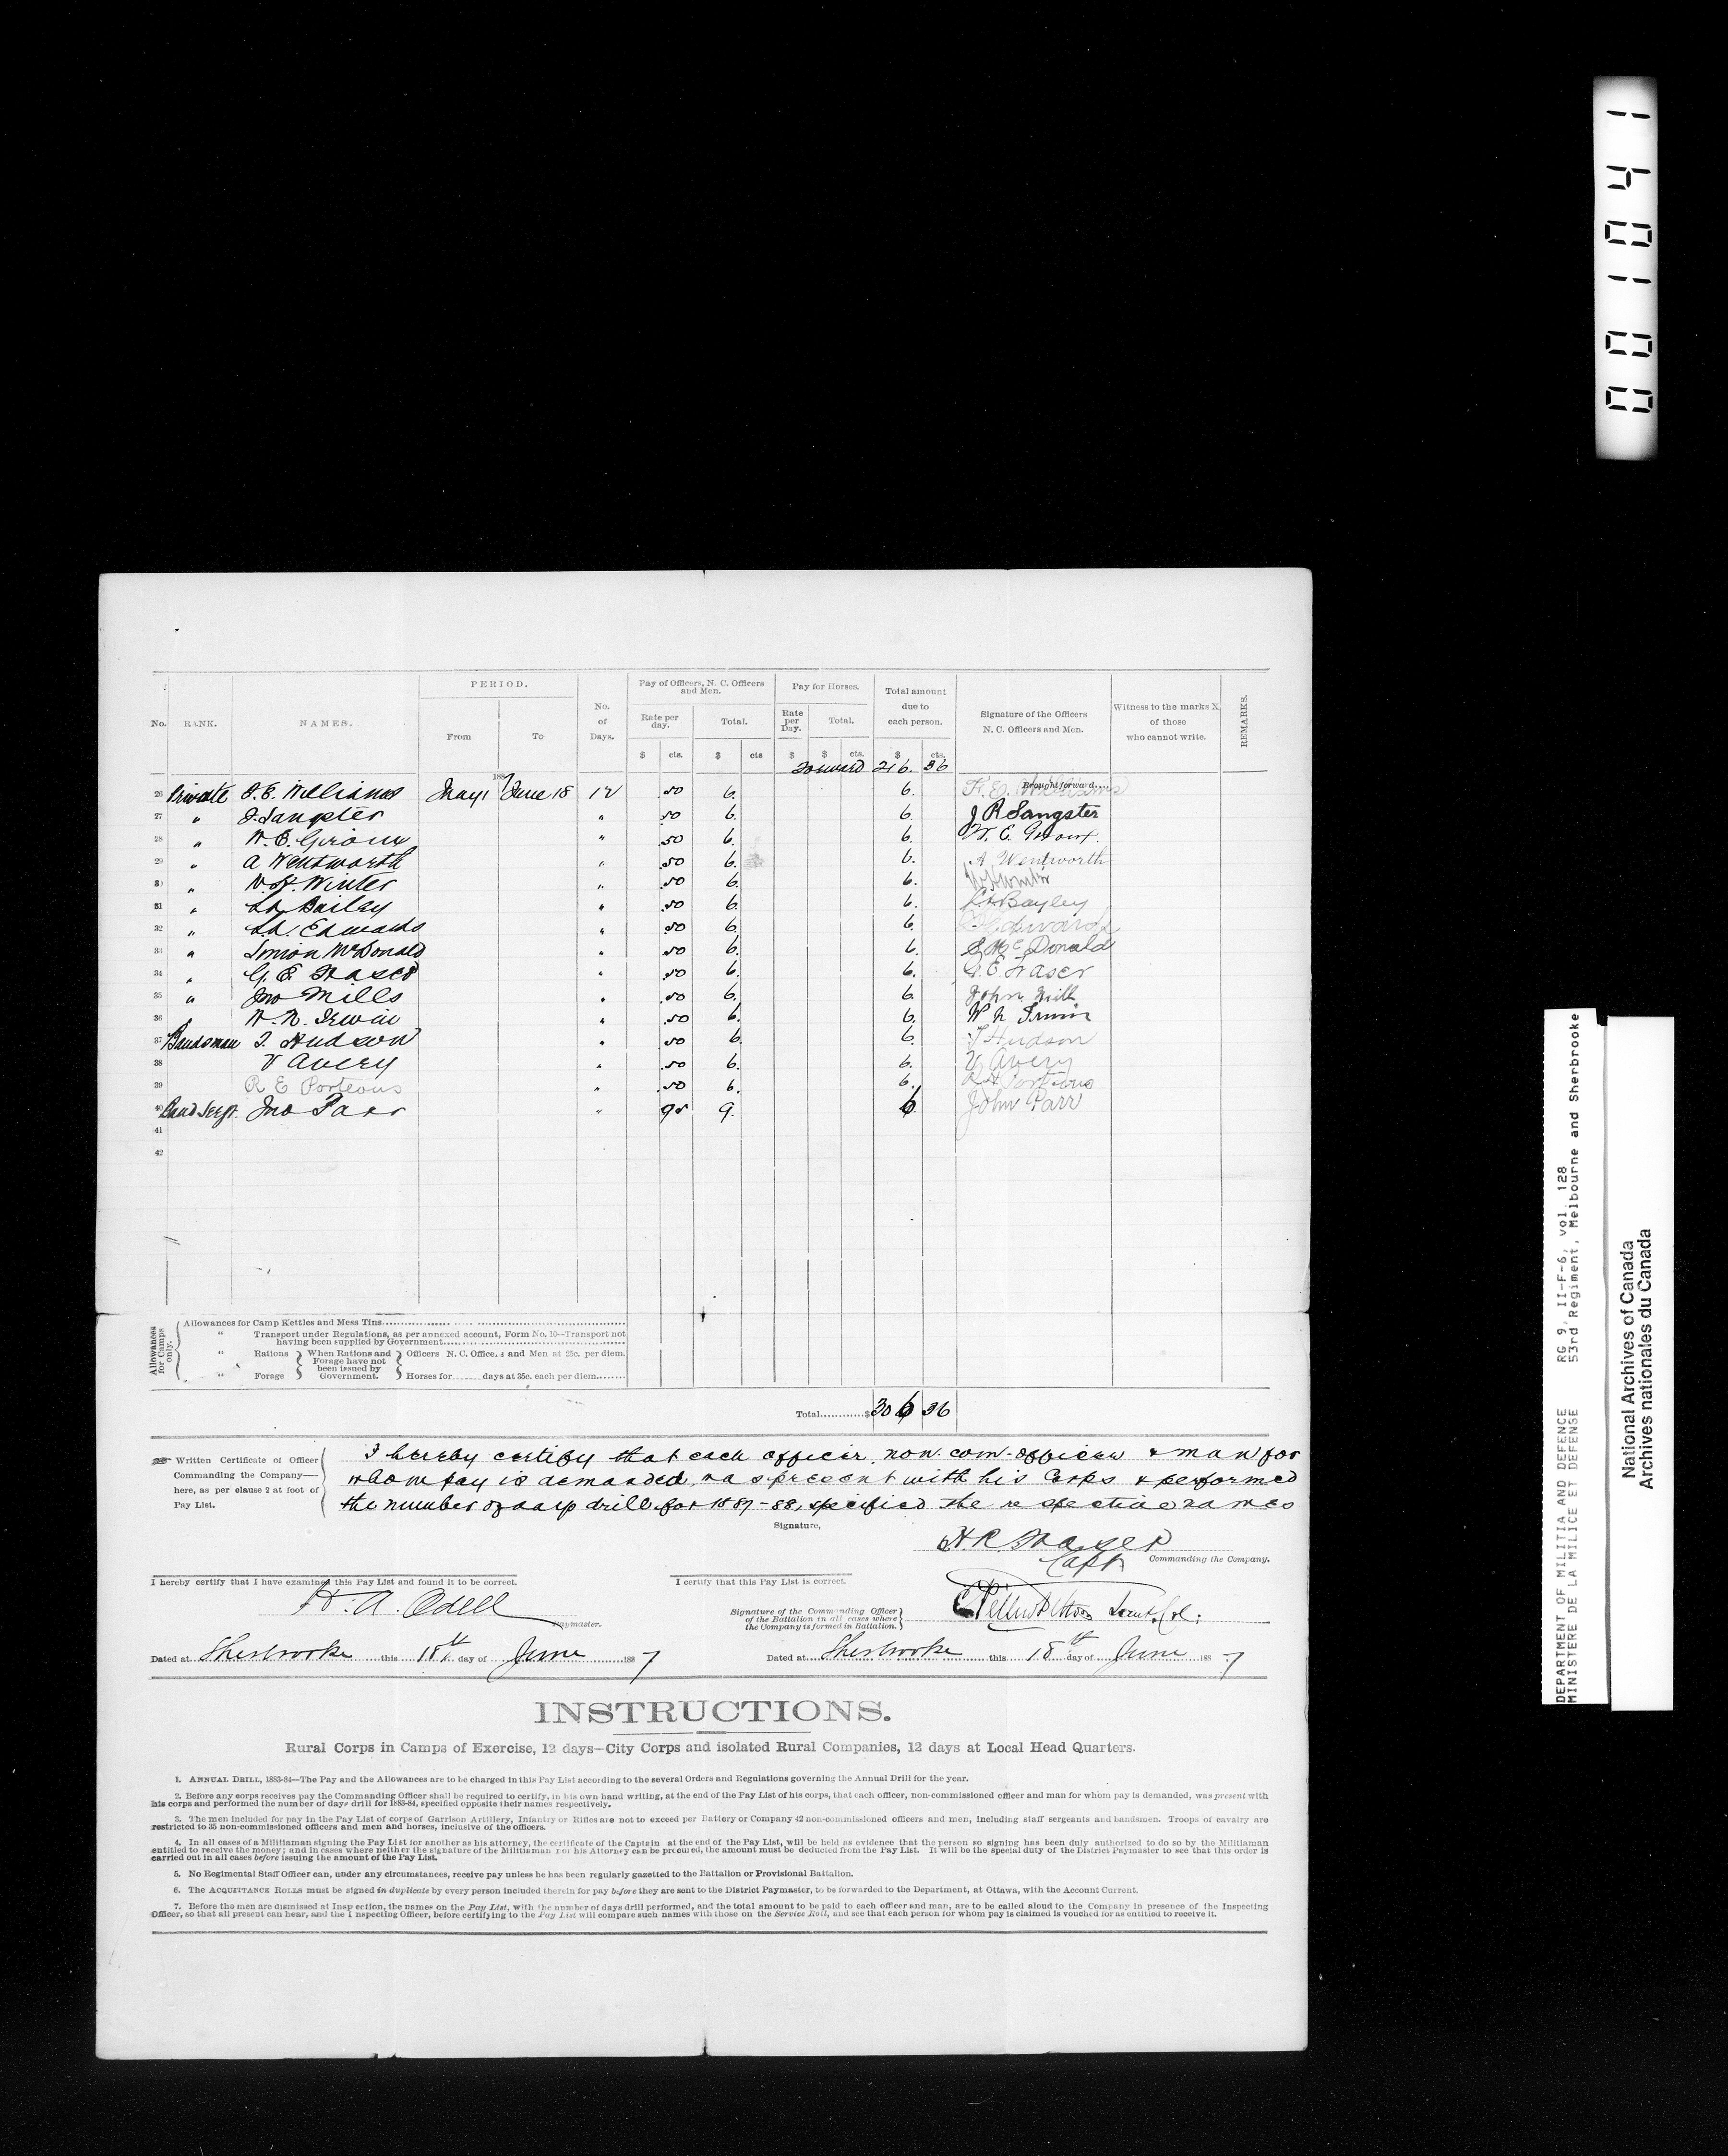 PERIOD.
Pay of Officers, N. C. Officers and Men.
Pay for Horses.
Total amount due to each person.
No. RANK. NAMES. From To No. of Days. Rate per day. Total. Rate per Day. Total. Signature of the Officers N. C. Officers and Men. Witness to the marks X, of those who cannot write. REMARKS.
$ cts. $ cts $ $ cts. $ cts.
Forward 216. 36
1887 Brought forward....
26 Private F. E. Williams May 1 June 18 12 .50 6. 6. F. E. Williams
27 " J. Sangster " .50 6. 6. J R Sangster
28 " W. E. Giroux " .50 6. 6. W. E. Giroux.
29 " A Wentworth " .50 6. 6. A Wentworth
30 " W. H. Winter " .50 6. 6. W H Winter
31 " Bailey " .50 6. 6. Bayley
32 " Edwards " .50 6. 6. Edwards
33 " Simion McDonald " .50 6. 6. S McDonald
34 " G. E. Fraser " .50 6. 6. G. E. Fraser
35 " Jno Mills " .50 6. 6. John Mills
36 " W. N. Irwin " .50 6. 6. W N Irwin
37 Bandsman T. Hudson " .50 6. 6. T Hudson
38 V Avery " .50 6. 6. V Avery
39 R E Porteous " .50 6. 6. Porteous
40 Band Sergt. Jno Parr " 9. John Parr
41
42
Allowances for Camps only.
Allowances for Camp Kettles and Mess Tins
" Transport under Regulations, as per annexed account, Form No. 10—Transport not having been supplied by Government
" Rations When Rations and Forage have not been issued by Government. Officers N. C. Officers and Men at 25c. per diem.
" Forage Horses for........days at 35c. each per diem.
Total............$ 306 36
Written Certificate of Officer Commanding the Company—here, as per clause 2 at foot of Pay List.
I hereby certify that each officer, non-com-officer & man for
whom pay is demanded, was present with his Corps & performed
the number of days drill for 1887-88, specified the respective names
Signature,
H R Fraser
Capt Commanding the Company.
I hereby certify that I have examined this Pay List and found it to be correct.
I certify that this Pay List is correct.
H. A. Odell
Paymaster.
Signature of the Commanding Officer of the Battalion in all cases where the Company is formed in Battalion.
Lieut. Col.
Dated at Sherbrooke this 18th day of June 1887
Dated at Sherbrooke this 18th day of June 1887
INSTRUCTIONS.
Rural Corps in Camps of Exercise, 12 days—City Corps and isolated Rural Companies, 12 days at Local Head Quarters.
1. ANNUAL DRILL, 1883-84—The Pay and the Allowances are to be charged in this Pay List according to the several Orders and Regulations governing the Annual Drill for the year.
2. Before any corps receives pay the Commanding Officer shall be required to certify, in his own hand writing, at the end of the Pay List of his corps, that each officer, non-commissioned officer and man for whom pay is demanded, was present with
his corps and performed the number of days drill for 1883-84, specified opposite their names respectively.
3. The men included for pay in the Pay List of corps of Garrison Artillery, Infantry or Rifles are not to exceed per Battery or Company 42 non-commissioned officers and men, including staff sergeants and bandsmen. Troops of cavalry are
restricted to 35 non-commissioned officers and men and horses, inclusive of the officers.
4. In all cases of a Militiaman signing the Pay List for another as his attorney, the certificate of the Captain at the end of the Pay List, will be held as evidence that the person so signing has been duly authorized to do so by the Militiaman
entitled to receive the money; and in cases where neither the signature of the Militiaman nor his Attorney can be procured, the amount must be deducted from the Pay List. It will be the special duty of the District Paymaster to see that this order is
carried out in all cases before issuing the amount of the Pay List.
5. No Regimental Staff Officer can, under any circumstances, receive pay unless he has been regularly gazetted to the Battalion or Provisional Battalion.
6. The ACQUITTANCE ROLLS must be signed in duplicate by every person included therein for pay before they are sent to the District Paymaster, to be forwarded to the Department, at Ottawa, with the Account Current.
7. Before the men are dismissed at Inspection, the names on the Pay List, with the number of days drill performed, and the total amount to be paid to each officer and man, are to be called aloud to the Company in presence of the Inspecting
Officer, so that all present can hear, and the Inspecting Officer, before certifying to the Pay List will compare such names with those on the Service Roll, and see that each person for whom pay is claimed is vouched for as entitled to receive it.
001041
DEPARTMENT OF MILITIA AND DEFENCE RG 9, II-F-6, vol. 128
MINISTERE DE LA MILICE ET DEFENSE 53rd Regiment, Melbourne and Sherbrooke
National Archives of Canada
Archives nationales du Canada